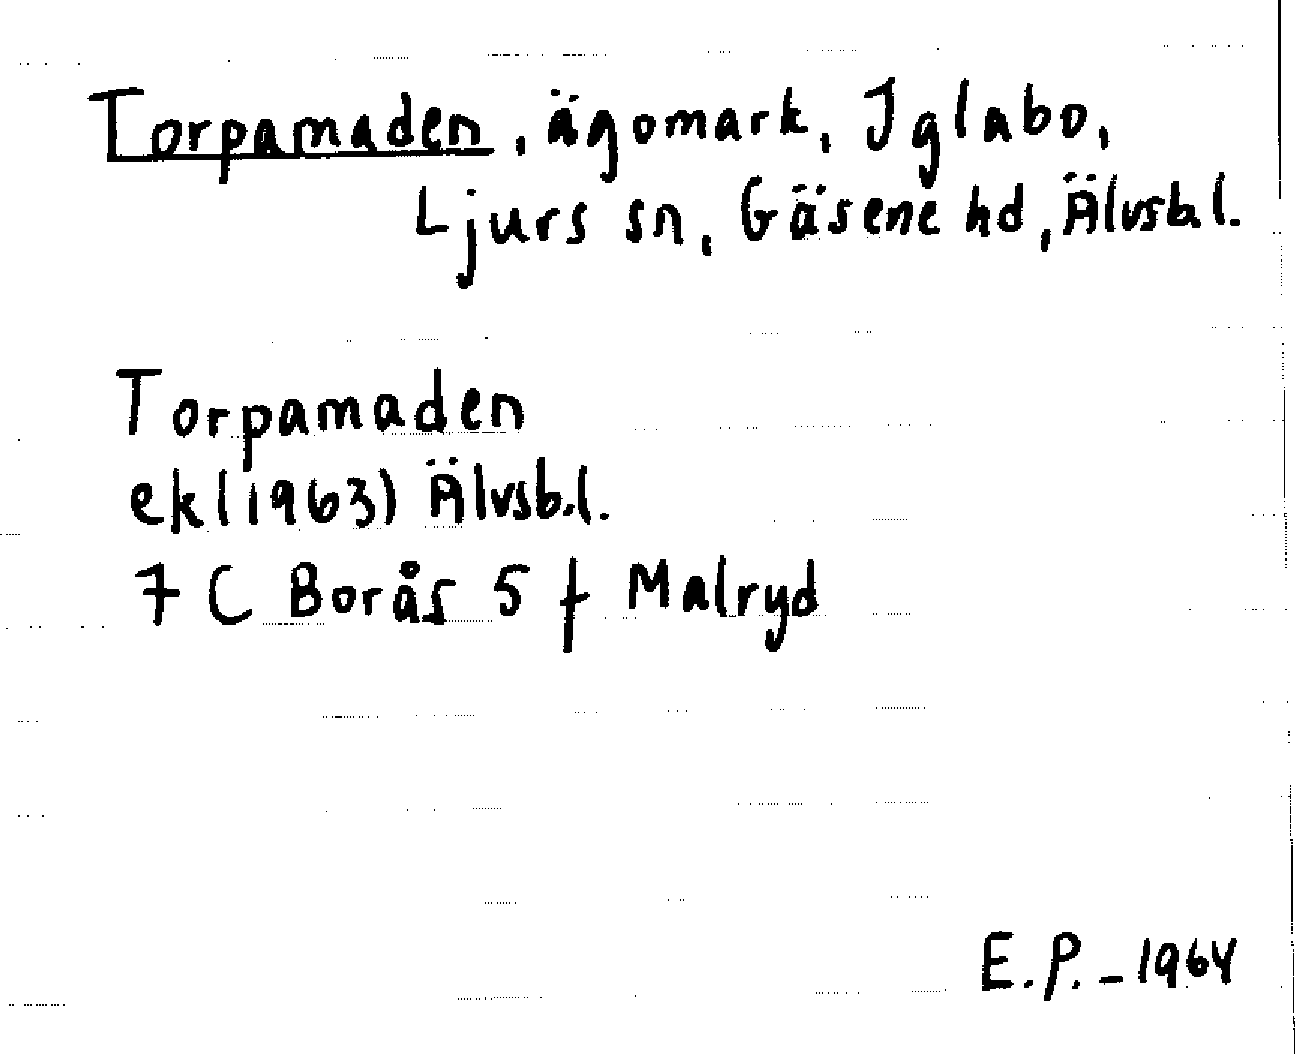 Torpamaden, ägomark, Iglabo,
Ljurs sn, Gäsene hd, Älvsb.l.
Torpamaden
ek(1963) Älvsb.l.
7 C Borås 5 f Malryd
E.P. - 1964